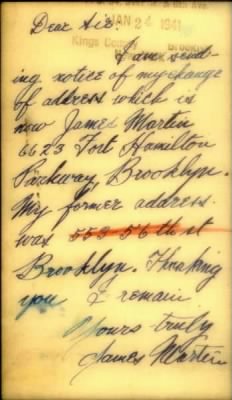 5TH AVE.
JAN 24 1941
Kings County Brooklyn
Dear Sir:
I am send-
ing notice of my change
of address which is
now James Martin
6623 Fort Hamilton
Parkway, Brooklyn.
My former address
was 553 56th st
Brooklyn. Thanking
you I remain
Yours truly
James Martin